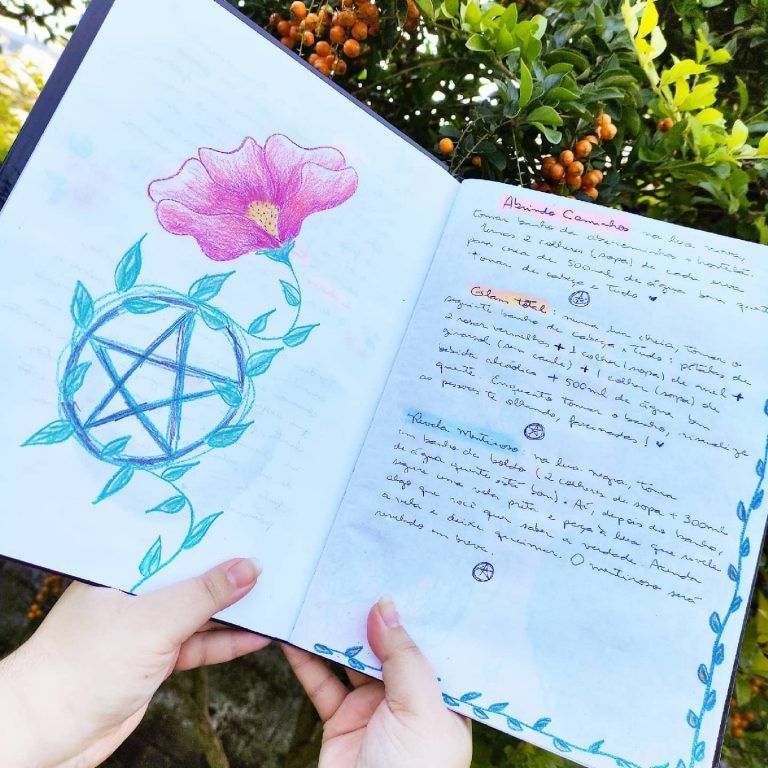 Abrindo Caminhos na lua nova,
tomar banho de abrecaminho + hortelã.
Umas 2 colheres (sopa) de cada erva
para cerca de 500ml de água bem quente
tomar de cabeça e tudo ♥
Glam total: numa lua cheia, tomar o
seguinte banho de cabeça e tudo: pétalas de
2 rosas vermelhas + 1 colher (sopa) de mel +
girassol (sem caule) + 1 colher (sopa) de
bebida alcoólica + 500ml de água bem
quente. Enquanto tomar o banho, visualize
as pessoas te olhando, fascinadas! ♥
Revela Mentiroso: na lua negra, toma
um banho de boldo (2 colheres de sopa + 300ml
de água quente está bom). Aí, depois do banho,
segure uma vela preta e peça à lua que revele
algo que você quer saber a verdade. Acenda
a vela e deixe queimar. O mentiroso será
revelado em breve.